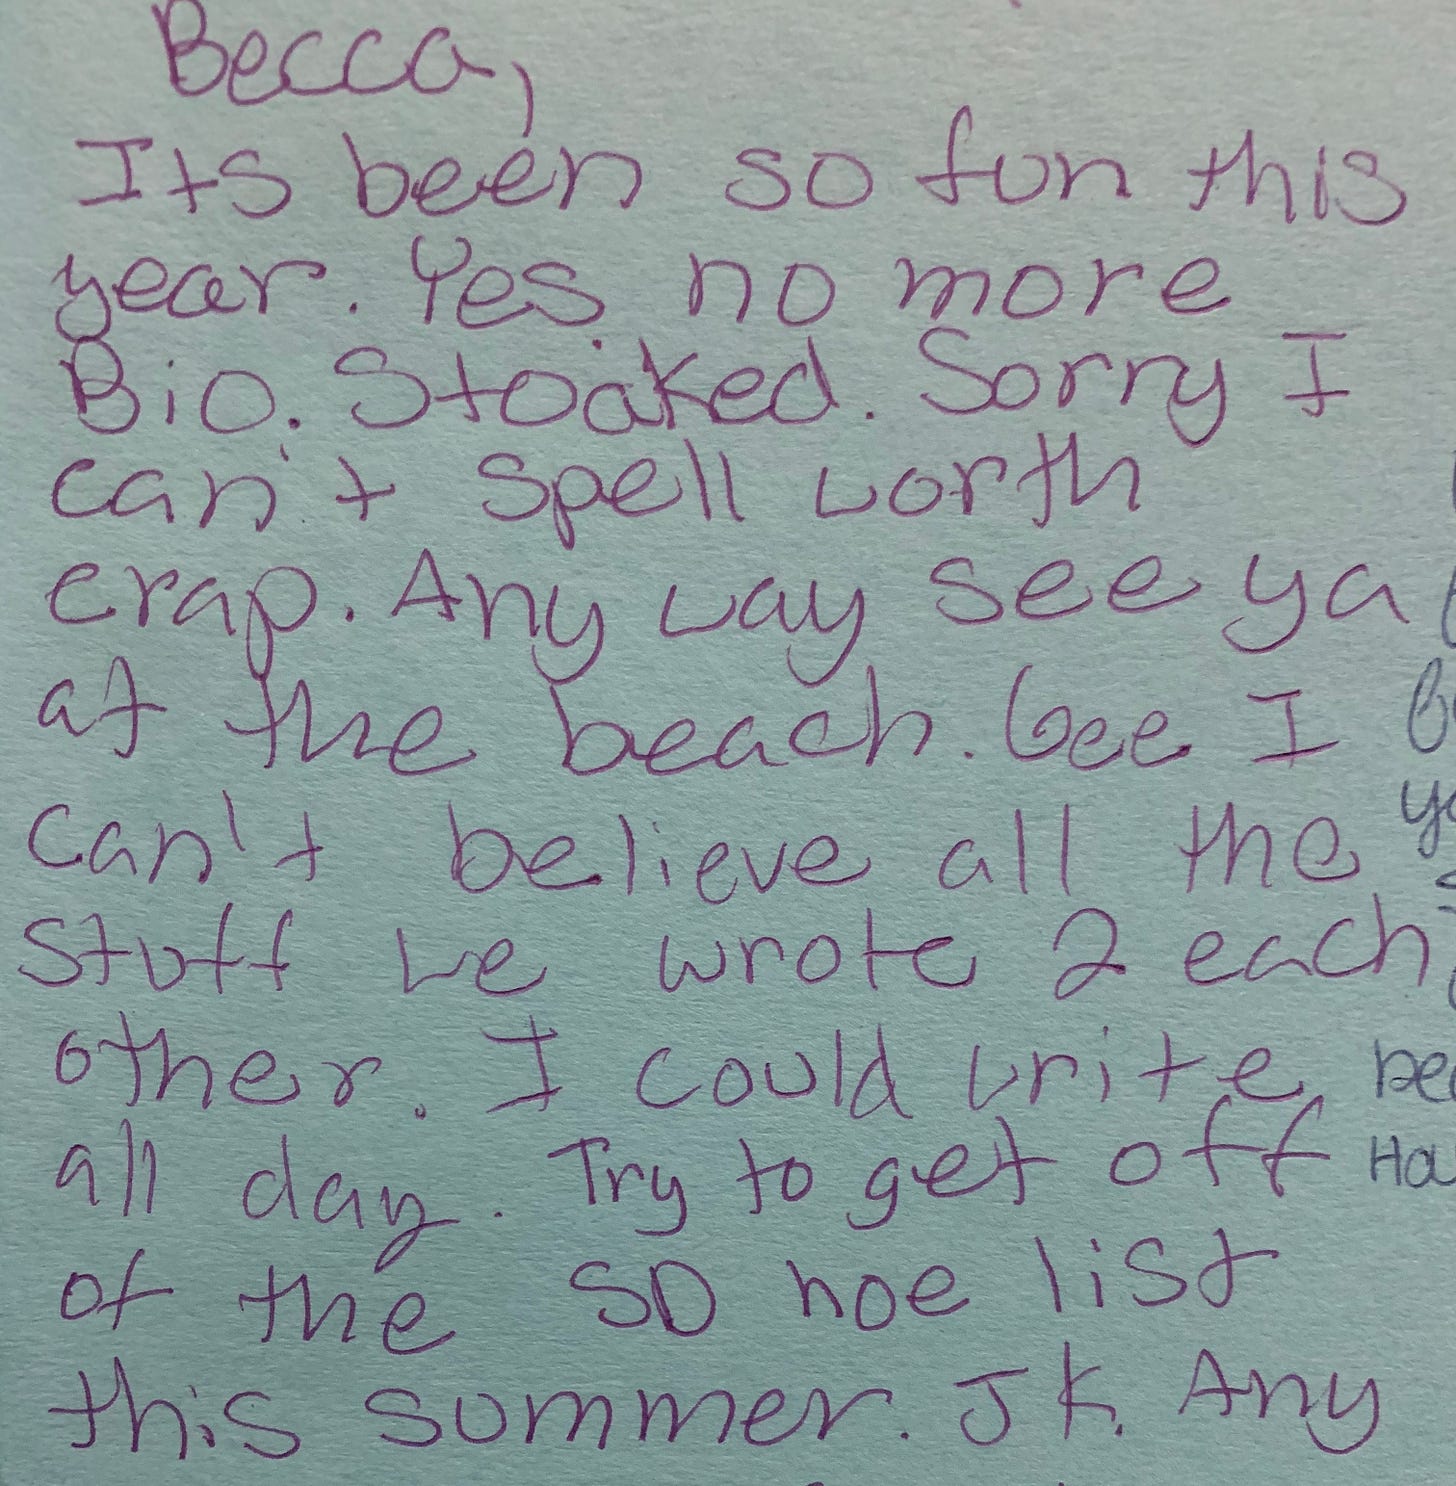 Becca,
Its been so fun this
year. Yes no more
Bio. Stoaked. Sorry I
can't spell worth
crap. Any way see ya
at the beach. Gee I
can't believe all the
stuff we wrote 2 each
other. I could write
all day. Try to get off
of the SD hoe list
this summer. JK. Any